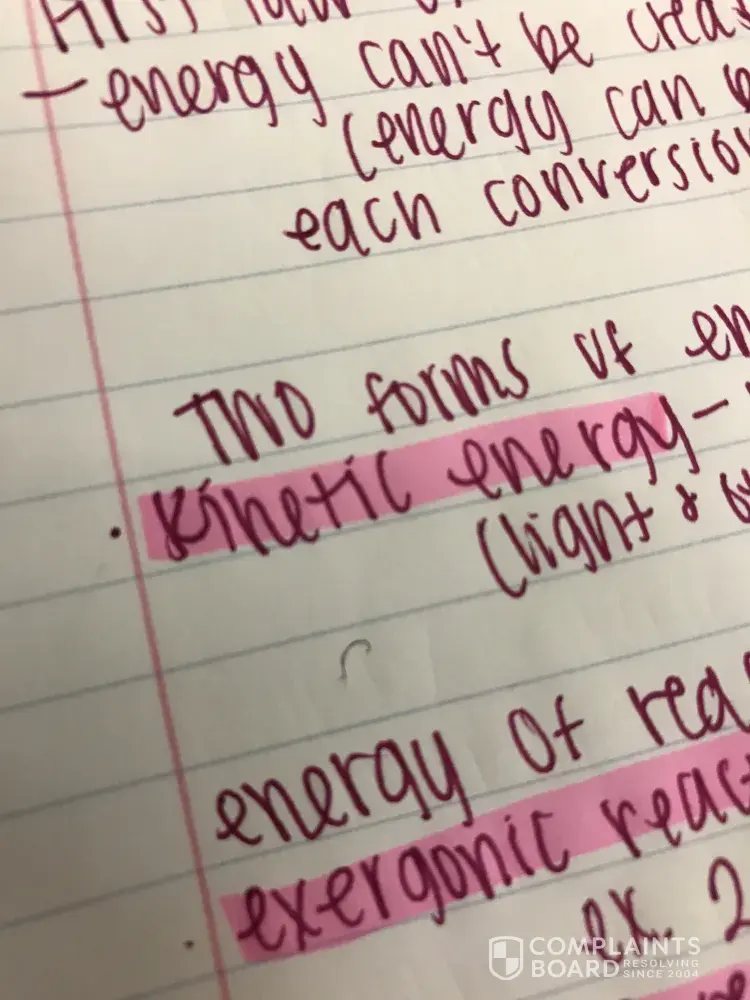 First law
- energy can't be
(energy can
each
Two forms of
• kinetic energy -
(light &
energy of
• exergonic
ex. 2
COMPLAINTS
BOARD RESOLVING
SINCE 2004